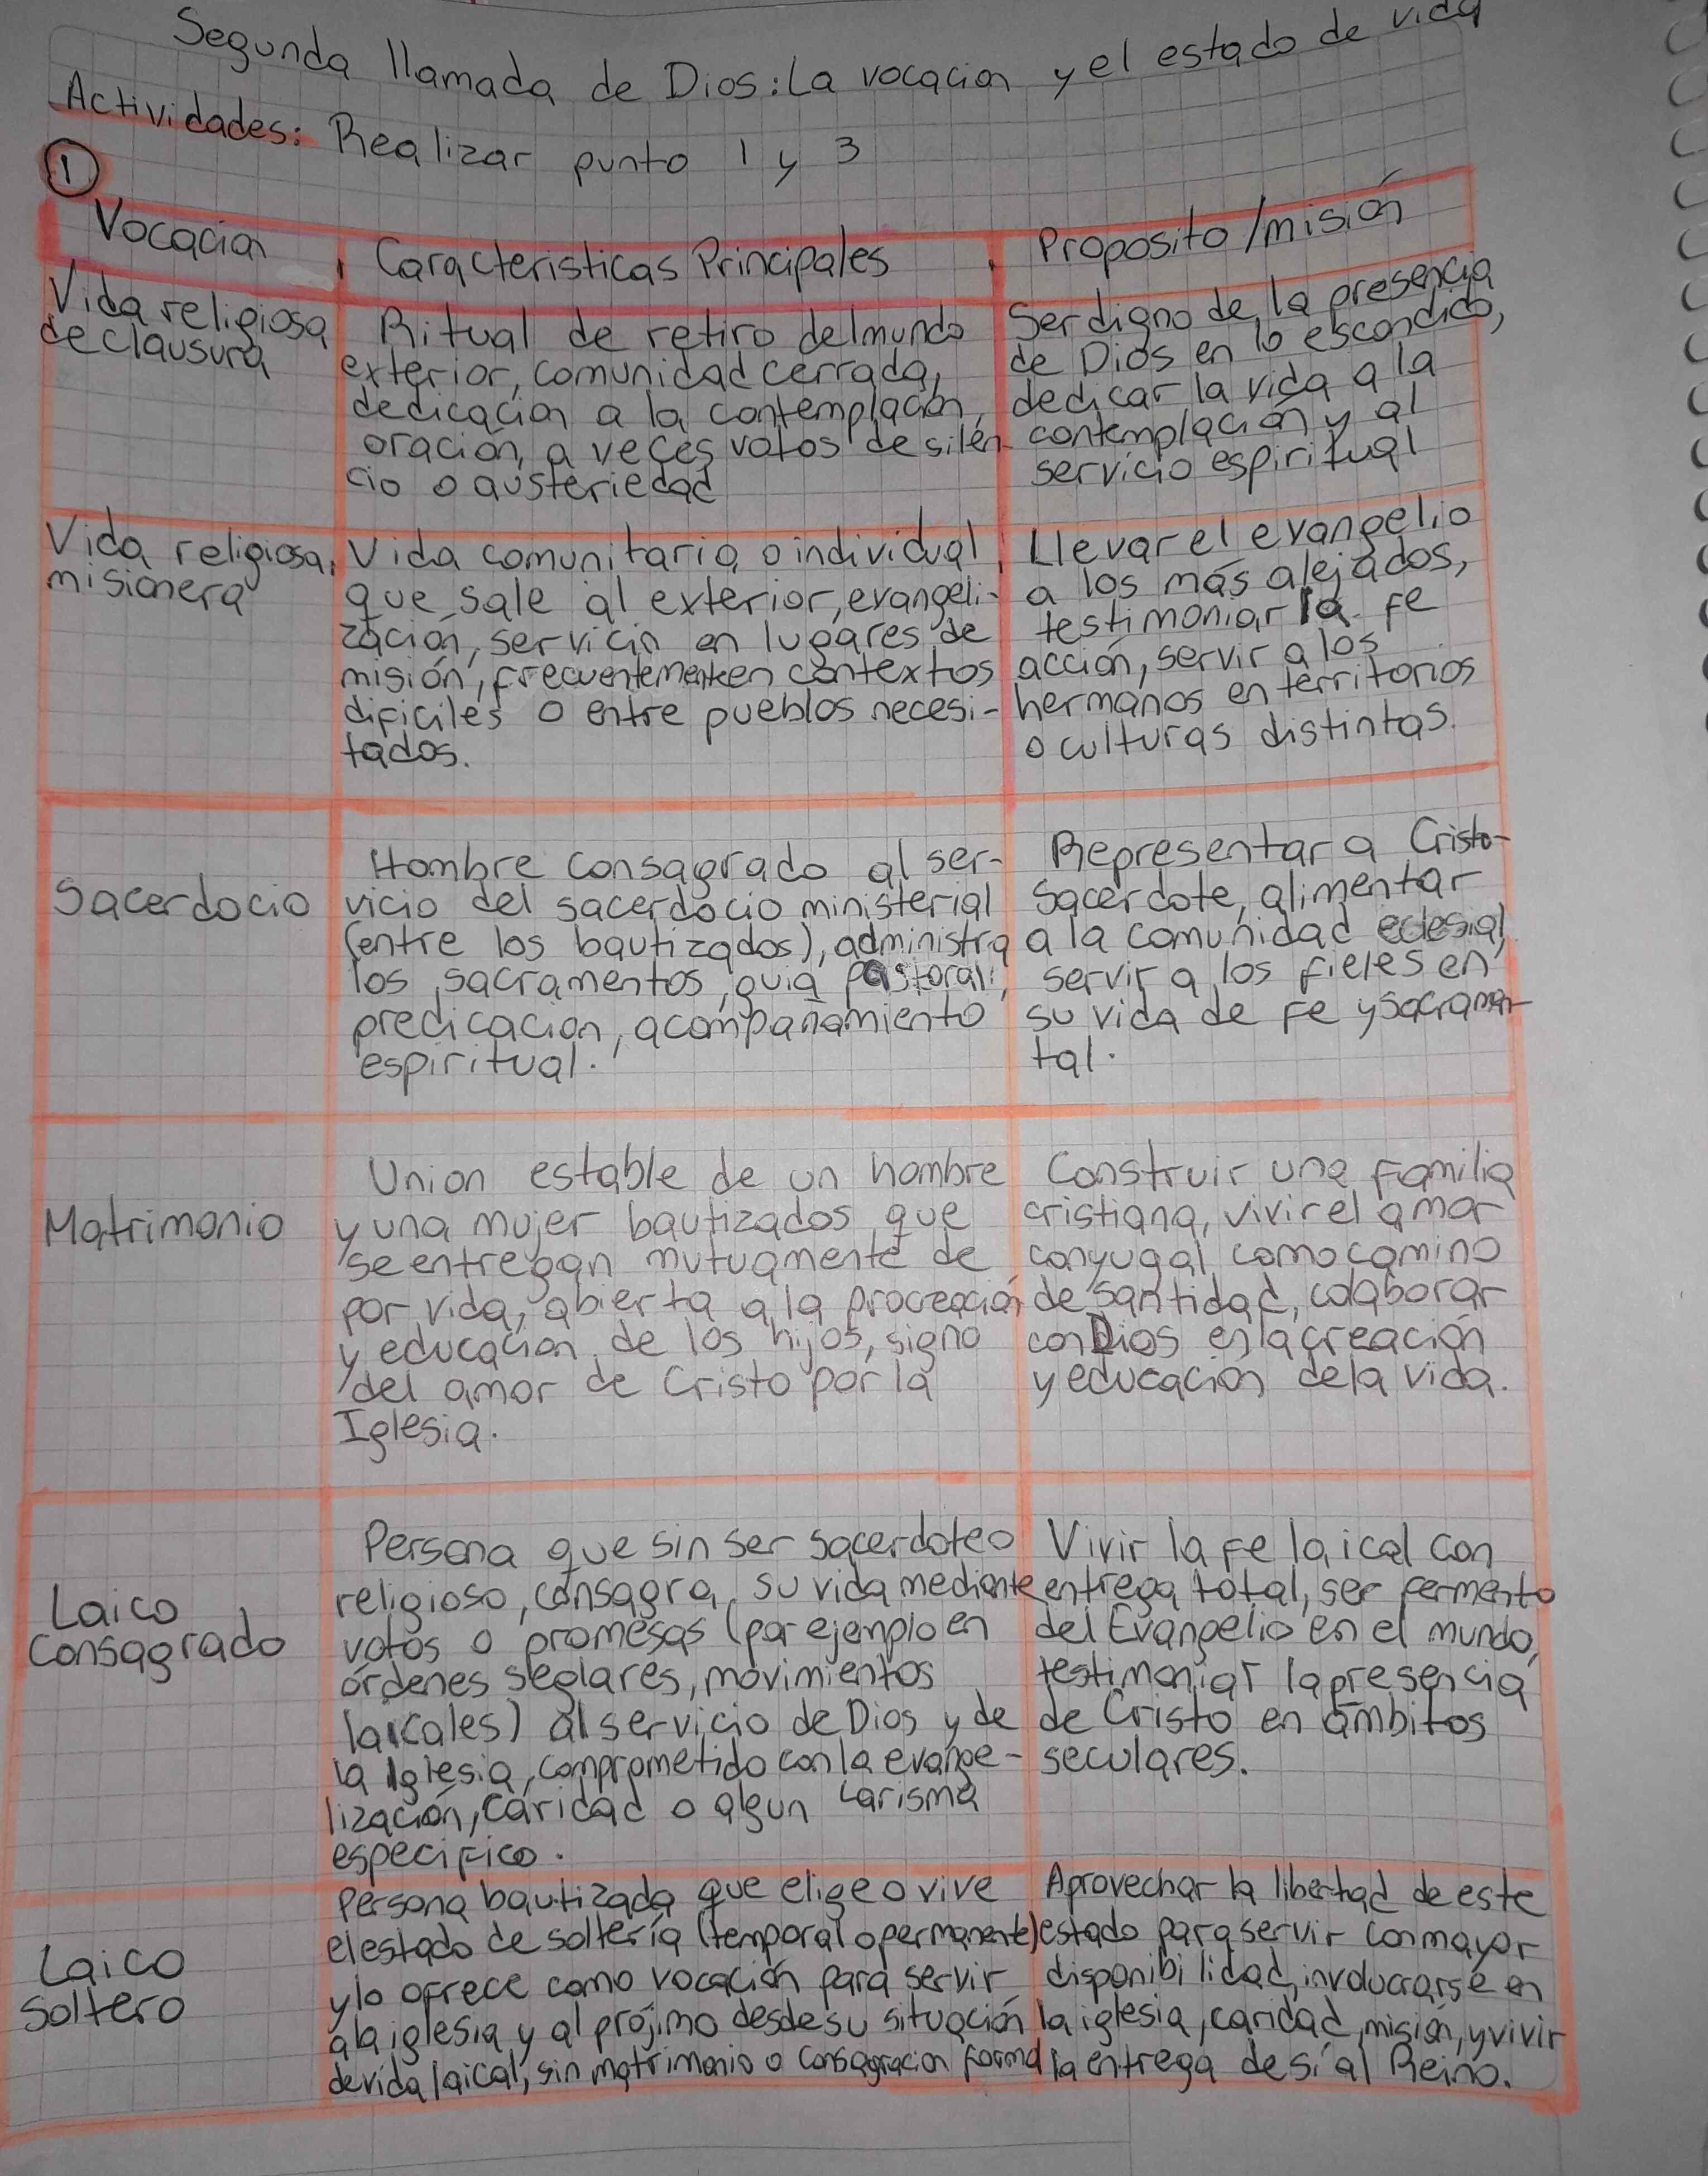 Segunda llamada de Dios: La vocacion y el estado de vida
Actividades: Realizar punto 1 y 3
1
Vocacion
Caracteristicas Principales
Proposito/misión
Vida religiosa
de clausura
Ritual de retiro del mundo
exterior, comunidad cerrada,
dedicación a la contemplación,
oración, a veces votos de silen-
cio o austeriedad
Ser digno de la presencia
de Dios en lo escondido,
dedicar la vida a la
contemplación y al
servicio espiritual
Vida religiosa
misionera
Vida comunitaria o individual
que sale al exterior, evangeli-
zación, servicio en lugares de
misión, frecuentemente en contextos
dificiles o entre pueblos necesi-
tados.
Llevar el evangelio
a los más alejados,
testimoniar la fe
acción, servir a los
hermanos en territorios
o culturas distintas.
Sacerdocio
Hombre consagrado al ser-
vicio del sacerdocio ministerial
(entre los bautizados), administra
los sacramentos, guia pastoral,
predicacion, acompañamiento
espiritual.
Representar a Cristo-
Sacerdote, alimentar
a la comunidad eclesial,
servir a los fieles en
su vida de fe y sacramen-
tal.
Matrimonio
Union estable de un hombre
y una mujer bautizados que
se entregan mutuamente de
por vida, abierta a la procreación
y educacion de los hijos, signo
del amor de Cristo por la
Iglesia.
Construir una familia
cristiana, vivir el amor
conyugal como camino
de santidad, colaborar
con Dios en la creación
y educación de la vida.
Laico
Consagrado
Persona que sin ser sacerdote o
religioso, consagra su vida mediante
votos o promesas (por ejemplo en
órdenes seglares, movimientos
laicales) al servicio de Dios y de
la Iglesia, comprometido con la evange-
lización, caridad o algun carisma
especifico.
Vivir la fe laical con
entrega total, ser fermento
del Evangelio en el mundo,
testimoniar la presencia
de Cristo en ámbitos
seculares.
Laico
Soltero
Persona bautizada que elige o vive
el estado de soltería (temporal o permanente)
y lo ofrece como vocación para servir
a la iglesia y al prójimo desde su situación
de vida laical, sin matrimonio o consagracion formal
Aprovechar la libertad de este
estado para servir con mayor
disponibilidad, involucrarse en
la iglesia, caridad, misión, y vivir
la entrega de sí al Reino.